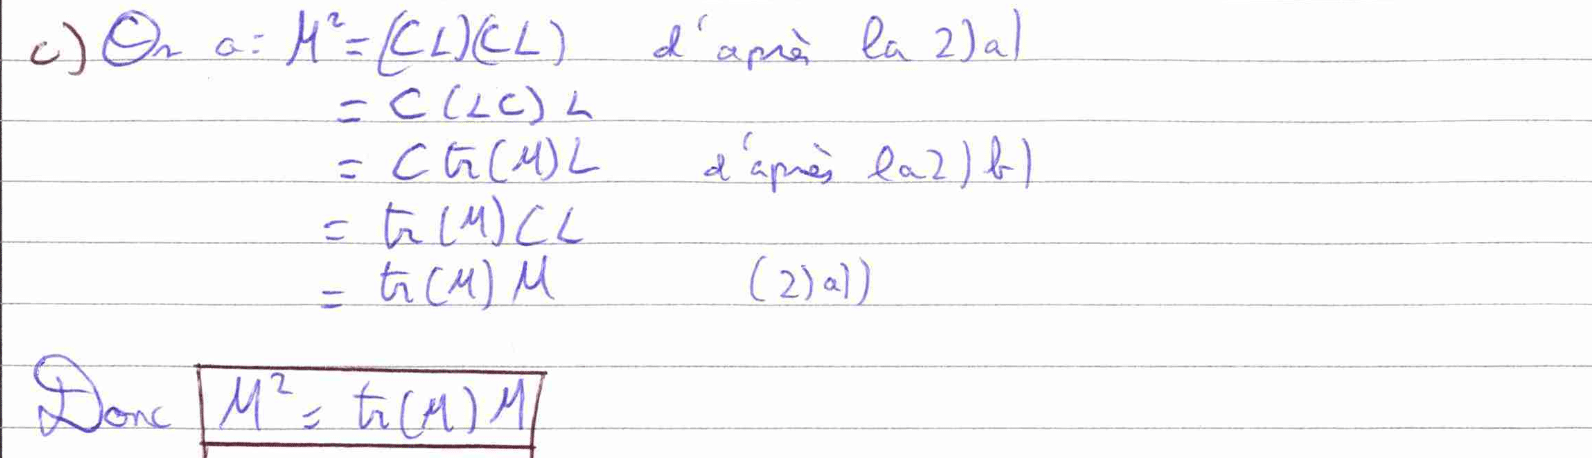 c) On a : M² = (CL)(CL) d'après la 2)a)
= C(LC)L
= C tr(M)L d'après la 2)b)
= tr(M)CL
= tr(M)M (2)a))
Donc M² = tr(M)M